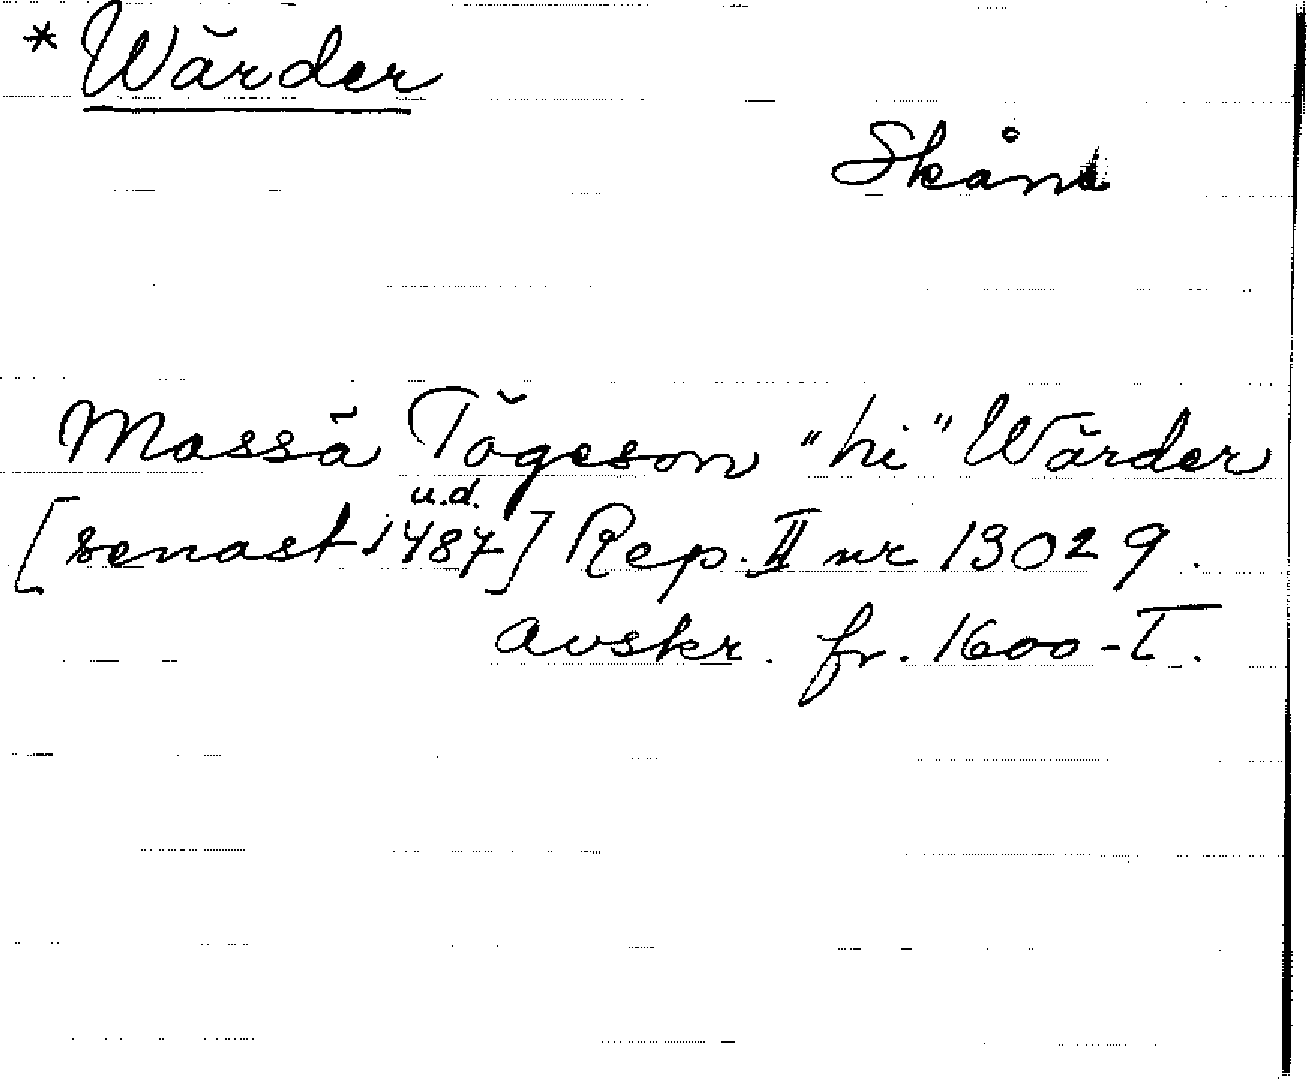 * Wärder
Skåne
Massä Tögeson "hi" Wärder
u.d.
[senast 1487] Rep. II nr 13029.
avskr. fr. 1600-T.